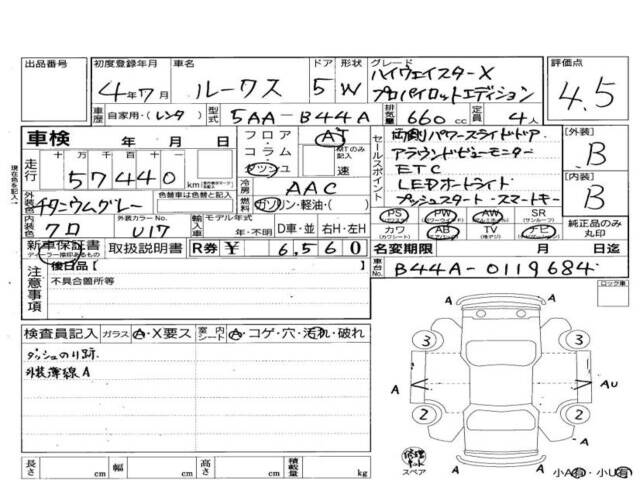 出品番号 初度登録年月 車名 ドア 形状 グレード 評価点
4年7月 ルークス 5 W ハイウェイスターX
プロパイロットエディション
4.5
車歴 自家用・(レンタ) 型式 5AA-B44A 排気量 660 cc 定員 4人
車検 年 月 日
フロア AT
コラム MTのみ記入
ダッシュ 速
セールスポイント
両側パワースライドドア
アラウンドビューモニター
ETC
LEDオートライド
プッシュスタート・スマートキー
[外装]
B
[内装]
B
現在色を記入
走行 十万千百十一
57440 km
冷房 AAC
外装色 色替車は色替と記入
チタニウムグレー
燃料 ガソリン・軽油・(
PS PW AW SR
(パワステ) (パワーウインド) (サンルーフ)
カワ AB TV ナビ
(カワシート) (エアバッグ)
純正品のみ
丸印
内装色 クロ 外装カラーNo. U17 輸入車 モデル年式 年・不明 D車・並 右H・左H
新車保証書
ディーラー捺印あるもの
取扱説明書 R券 ¥ 6,560 名変期限 月 日迄
注意事項 後日品[
不具合箇所等
車台No. B44A-0119684
ロック車
検査員記入 ガラス A・X要ス 室内シート A・コゲ・穴・汚れ・破れ
ダッシュのり跡
外装薄線A
A A
3 3
A A A AU
2 2
A A
修理キット
スペア
小A有・小U有
長さ cm 幅 cm 高さ cm 積載量 kg